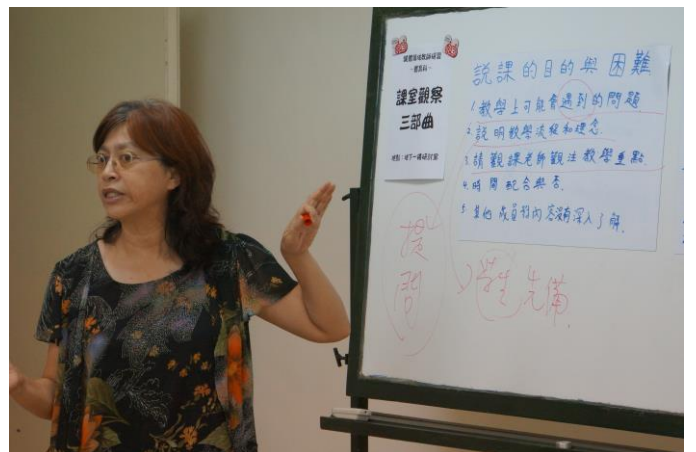 -體育科-
課室觀察
三部曲
地點：地下一樓研討室
說課的目的與困難
1.教學上可能會遇到的問題
2.說明教學流程和理念.
3.請觀課老師觀注教學重點.
4.時間配合與否.
5.其他成員對內容須深入了解.
提問
學生先備.